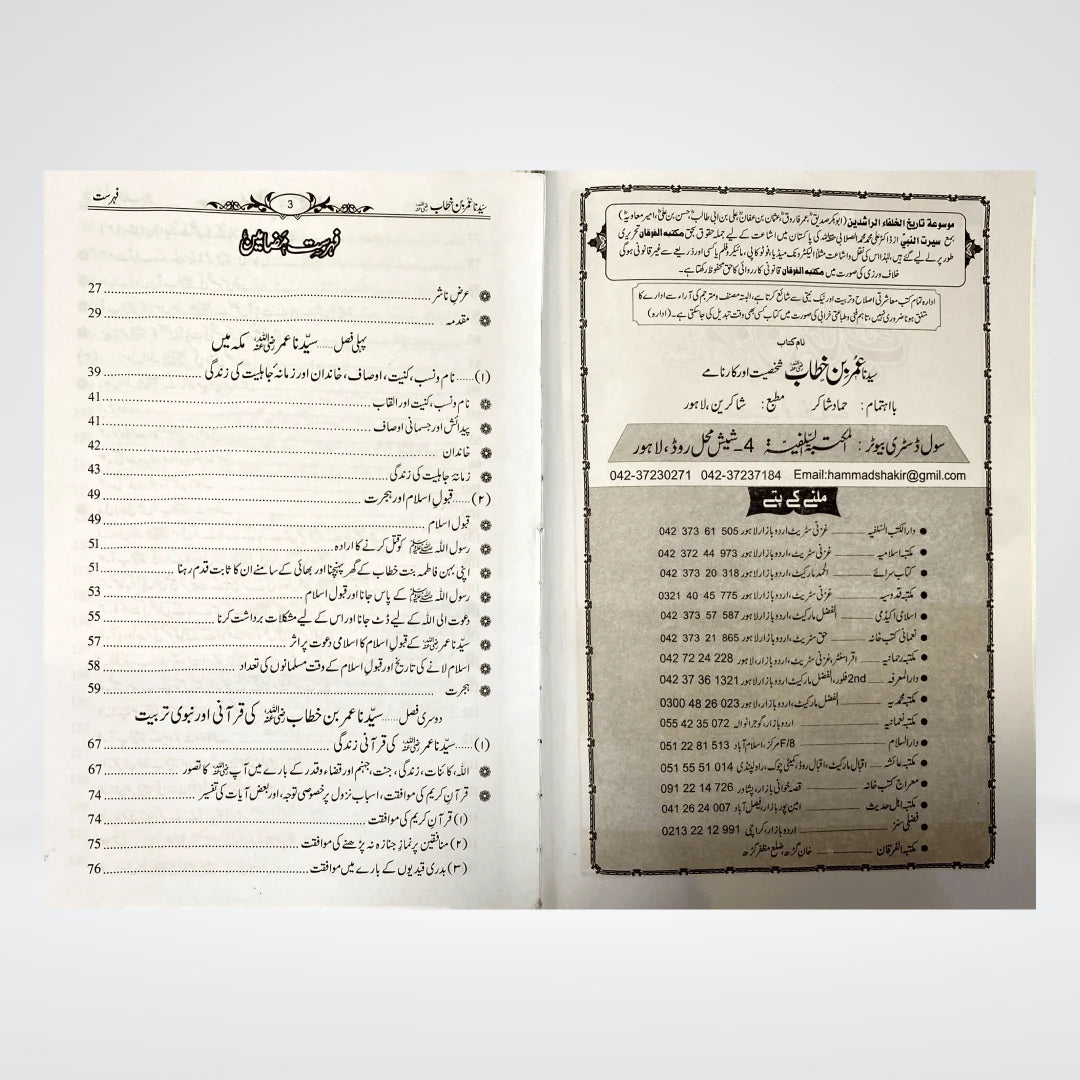 موسوعة تاريخ الخلفاء الراشدين (ابوبکر صدیقؓ، عمر فاروقؓ، عثمان بن عفانؓ، علی بن ابی طالبؓ، حسن بن علیؓ، امیر معاویہؓ)
بمع سیرت النبیؐ از ڈاکٹر علی محمد محمد الصلابی حفظہ اللہ کی پاکستان میں اشاعت کے لیے جملہ حقوق بحق مکتبہ الفرقان تحریری
طور پر لے لیے گئے ہیں، لہٰذا اس کی نقل و اشاعت مثلاً الیکٹرونک میڈیا، فوٹو کاپی، مائیکرو فلم یا کسی اور ذریعے سے غیر قانونی ہوگی
خلاف ورزی کی صورت میں مکتبہ الفرقان قانونی کارروائی کا حق محفوظ رکھتا ہے۔
ادارہ تمام کتب معاشرتی اصلاح و تربیت اور نیک نیتی سے شائع کرتا ہے، البتہ مصنف و مترجم کی آراء سے ادارے کا
متفق ہونا ضروری نہیں، تاہم فنی و طباعتی خرابی کی صورت میں کتاب کسی بھی وقت تبدیل کی جاسکتی ہے۔ (ادارہ)
نام کتاب
سیدنا عمر بن خطاب رضی اللہ عنہ شخصیت اور کارنامے
بااہتمام: حماد شاکر مطبع: شاکرین، لاہور
سول ڈسٹری بیوٹر: المکتبۃ السلفیۃ 4-شیش محل روڈ، لاہور
042-37230271 042-37237184 Email:hammadshakir@gmil.com
ملنے کے پتے
● دارالکتب السلفیہ ــــ غزنی سٹریٹ، اردو بازار لاہور 042 373 61 505
● مکتبہ اسلامیہ ــــ غزنی سٹریٹ، اردو بازار لاہور 042 372 44 973
● کتاب سرائے ــــ الحمد مارکیٹ، اردو بازار لاہور 042 373 20 318
● مکتبہ قدوسیہ ــــ غزنی سٹریٹ، اردو بازار لاہور 0321 40 45 775
● اسلامی اکیڈمی ــــ الفضل مارکیٹ، اردو بازار لاہور 042 373 57 587
● نعمانی کتب خانہ ــــ حق سٹریٹ، اردو بازار لاہور 042 373 21 865
● مکتبہ رحمانیہ ــــ اقراسنٹر، غزنی سٹریٹ، اردو بازار، لاہور 042 72 24 228
● دارالمعرفہ ــــ 2nd فلور، الفضل مارکیٹ، اردو بازار لاہور 042 37 36 1321
● مکتبہ محمدیہ ــــ الفضل مارکیٹ، اردو بازار، لاہور 0300 48 26 023
● مکتبہ نعمانیہ ــــ اردو بازار، گوجرانوالہ 055 42 35 072
● دارالسلام ــــ F/8 مرکز، اسلام آباد 051 22 81 513
● مکتبہ عائشہ ــــ اقبال مارکیٹ، اقبال روڈ، کمیٹی چوک، راولپنڈی 051 55 51 014
● معراج کتب خانہ ــــ قصہ خوانی بازار، پشاور 091 22 14 726
● مکتبہ اہل حدیث ــــ امین پور بازار، فیصل آباد 041 26 24 007
● فضلی سنز ــــ اردو بازار، کراچی 0213 22 12 991
● مکتبہ الفرقان ــــ خان گڑھ، ضلع مظفر گڑھ
سیدنا عمر بن خطاب رضی اللہ عنہ 3 فہرست
فہرست مضامین
عرض ناشر 27
مقدمہ 29
پہلی فصل...... سیّدنا عمر رضی اللہ عنہ مکہ میں
(۱)...... نام و نسب، کنیت، اوصاف، خاندان اور زمانۂ جاہلیت کی زندگی 39
نام و نسب، کنیت اور القاب 41
پیدائش اور جسمانی اوصاف 41
خاندان 42
زمانۂ جاہلیت کی زندگی 43
(۲)...... قبولِ اسلام اور ہجرت 49
قبول اسلام 49
رسول اللہ ﷺ کو قتل کرنے کا ارادہ 51
اپنی بہن فاطمہ بنت خطاب کے گھر پہنچنا اور بھائی کے سامنے ان کا ثابت قدم رہنا 51
رسول اللہ ﷺ کے پاس جانا اور قبول اسلام 53
دعوت الی اللہ کے لیے ڈٹ جانا اور اس کے لیے مشکلات برداشت کرنا 55
سیّدنا عمر رضی اللہ عنہ کے قبول اسلام کا اسلامی دعوت پر اثر 57
اسلام لانے کی تاریخ اور قبول اسلام کے وقت مسلمانوں کی تعداد 58
ہجرت 59
دوسری فصل...... سیّدنا عمر بن خطاب رضی اللہ عنہ کی قرآنی اور نبوی تربیت
(۱)...... سیّدنا عمر رضی اللہ عنہ کی قرآنی زندگی 67
اللہ، کائنات، زندگی، جنت، جہنم اور قضاء و قدر کے بارے میں آپ رضی اللہ عنہ کا تصور 67
قرآن کریم کی موافقت، اسباب نزول پر خصوصی توجہ، اور بعض آیات کی تفسیر 74
(۱) قرآن کریم کی موافقت 74
(۲) منافقین پر نماز جنازہ نہ پڑھنے کی موافقت 75
(۳) بدری قیدیوں کے بارے میں موافقت 76